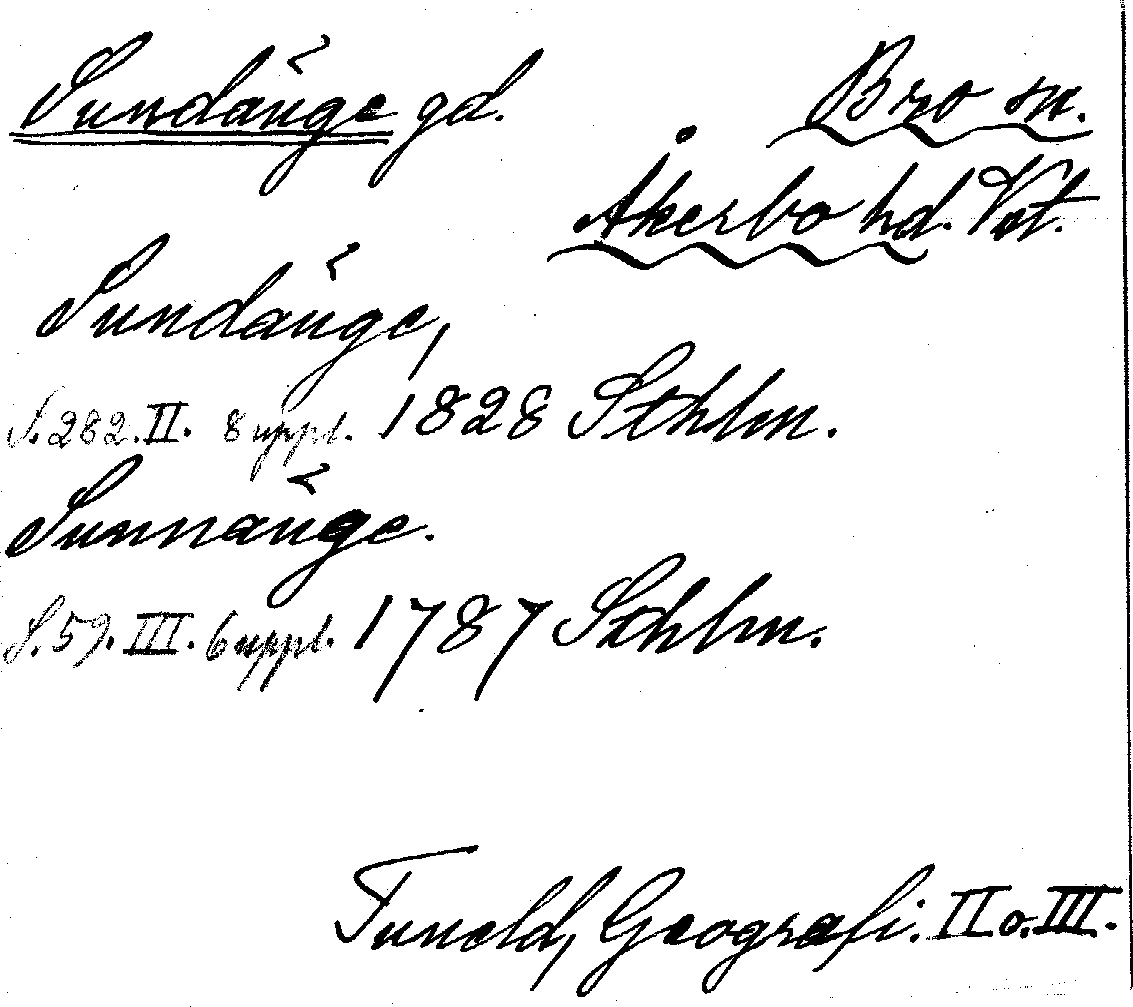 Sundänge gd. Bro sn.
Åkerbo hd. Vstl.
Sundänge,
S. 282. II. 8 uppl. 1828 Sthlm.
Sunnänge.
S. 59. III. 6 uppl. 1787 Sthlm.
Tuneld, Geografi. II o. III.